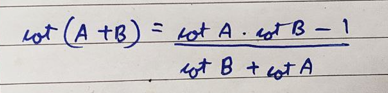 cot (A + B) = cot A . cot B - 1
cot B + cot A